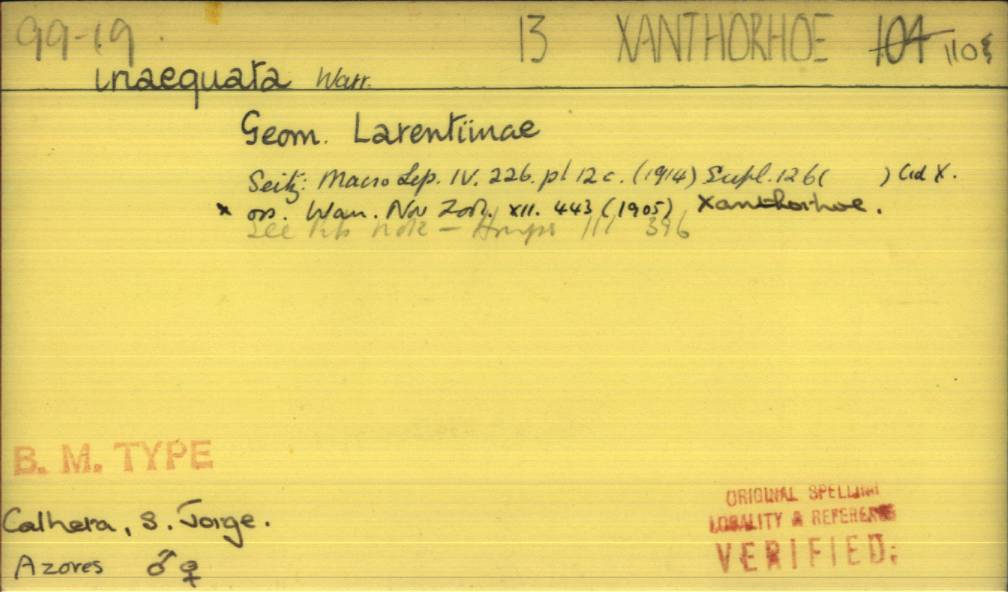 99-19. 13 XANTHORHOE 104 110
inaequata Warr.
Geom. Larentiinae
Seitz: Macro Lep. IV. 226. pl 12 c. (1914) Supl. 126 ( )
* Warr. Nov Zool. XII. 443 (1905) Xanthorhoe.
See note — 396
B. M. TYPE
Calheta, S. Jorge.
Azores ♂ ♀
ORIGINAL SPELLING
LOCALITY & REFERENCE
VERIFIED.